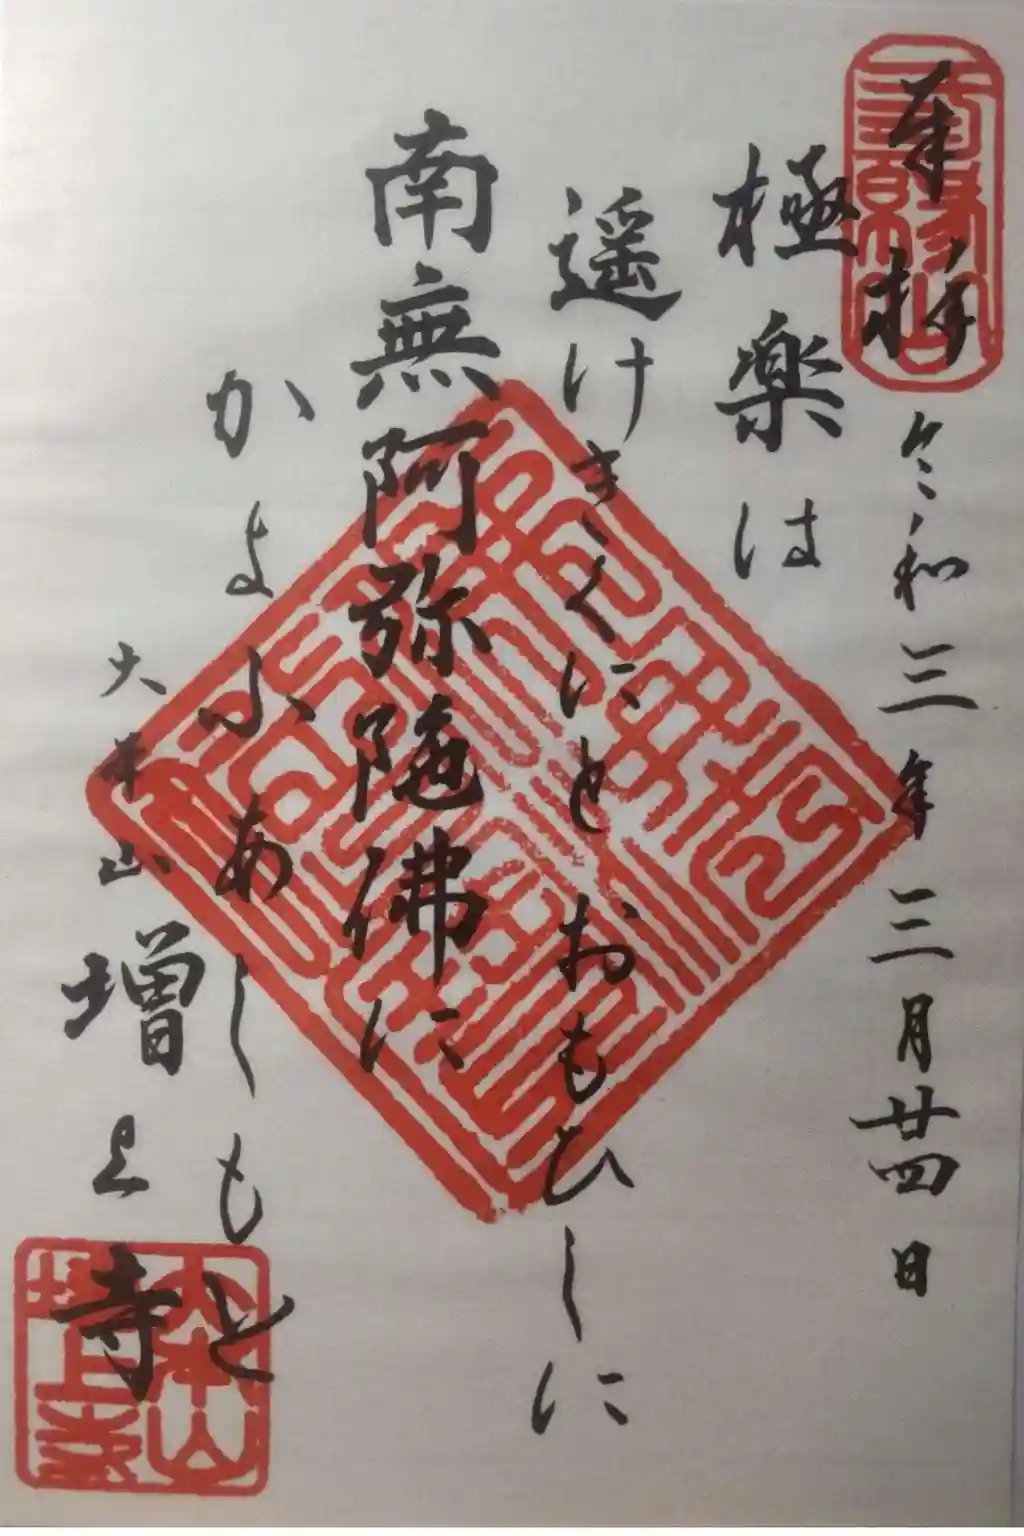 奉拝
令和三年三月廿四日
極楽は
遥けきくにとおもひしに
南無阿弥陀佛に
かよふあしもと
大本山増上寺
三縁山
大本山
増上寺